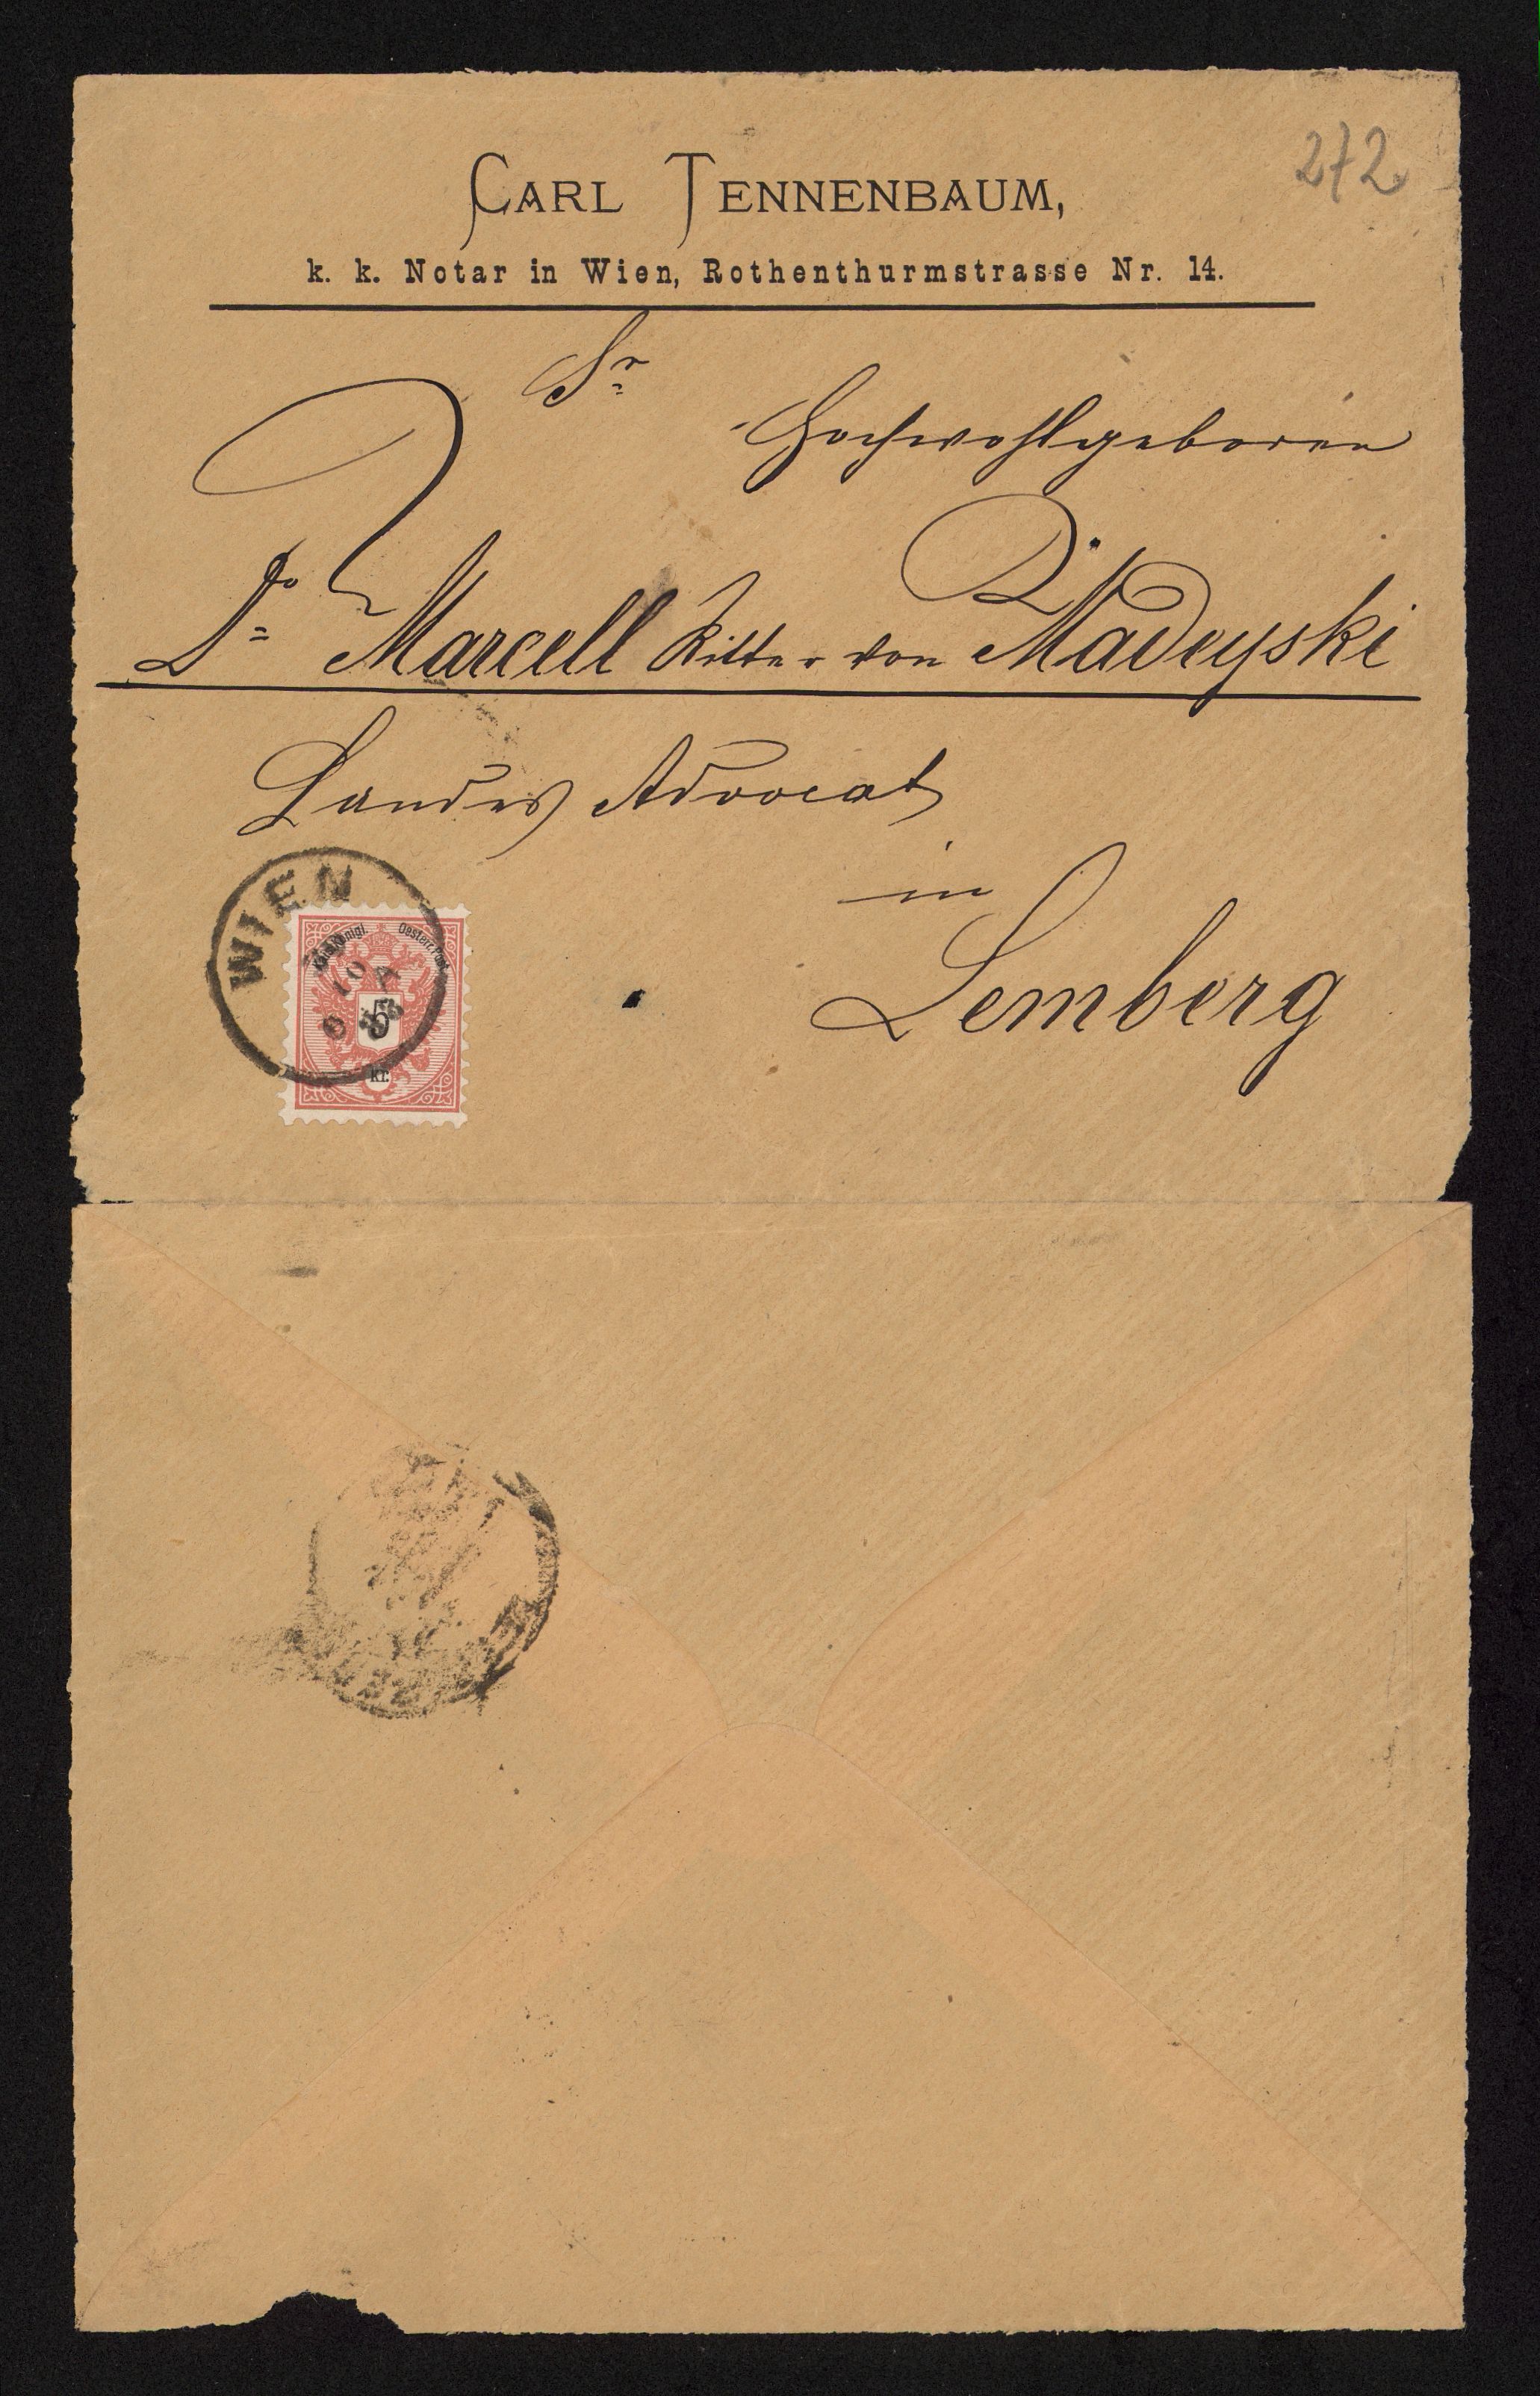 272
CARL TENNENBAUM,
k. k. Notar in Wien, Rothenthurmstrasse Nr. 14.
Sr
Hochwohlgeboren
Dr Marcell Ritter von Madeyski
Landes Advocat
in
Lemberg
WIEN
Kais. Königl. Oesterr. Post
10
5
Kr.